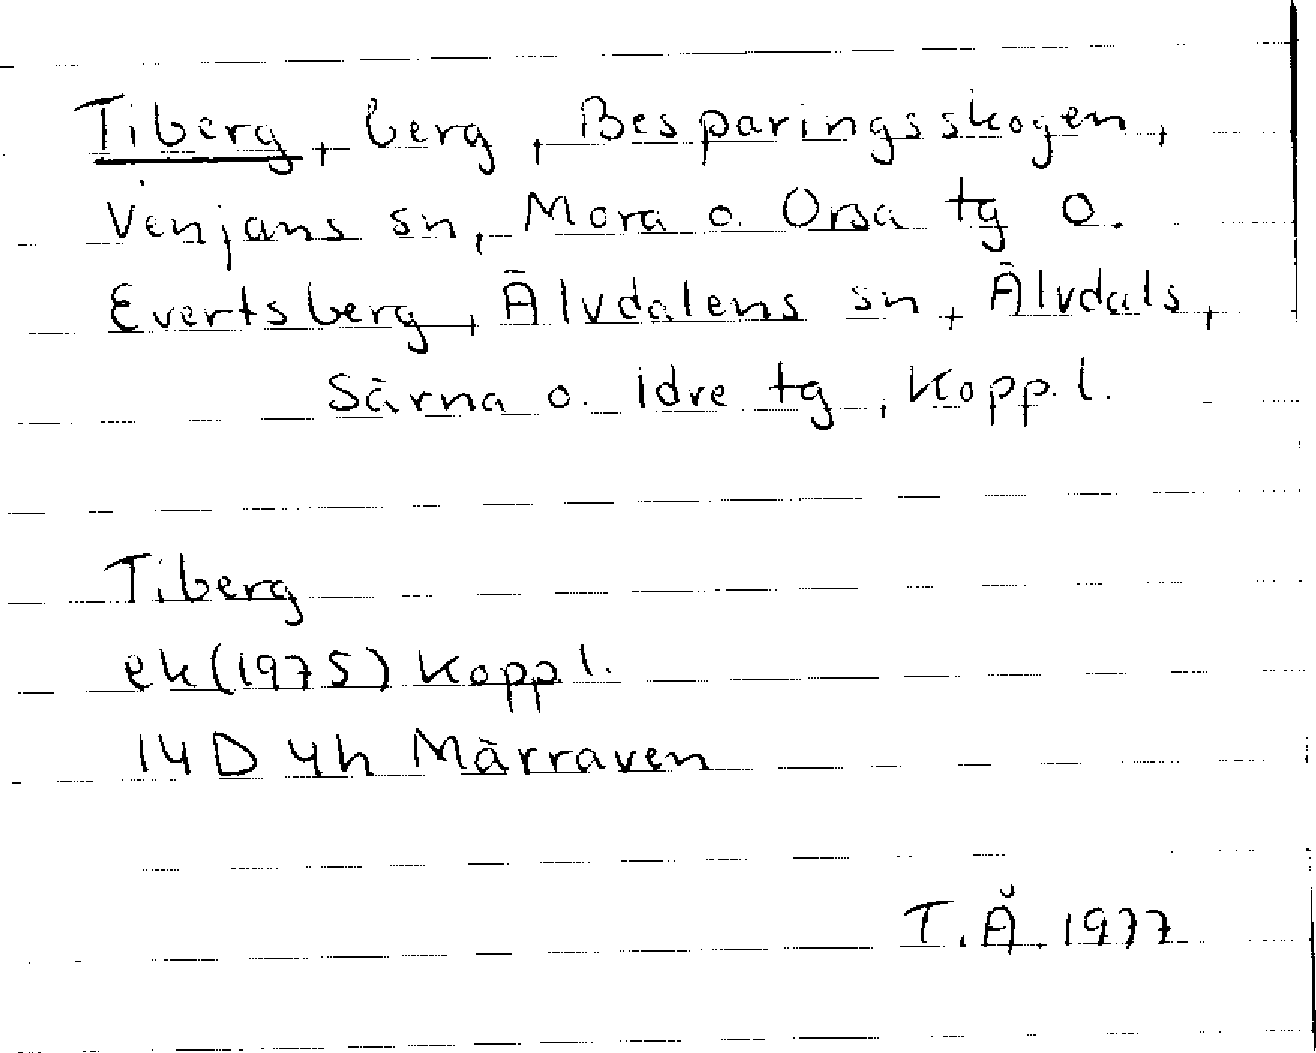 Tiberg, berg, Besparingsskogen,
Venjans sn, Mora o. Orsa tg o.
Evertsberg, Älvdalens sn, Älvdals,
Särna o. Idre tg, Kopp.l.
Tiberg
ek (1975) Kopp l.
14 D 4h Märraven
T.Å. 1977